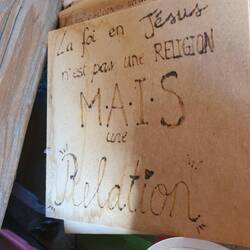 La foi en Jésus
n'est pas une RELIGION
M.A.I.S
une
Relation